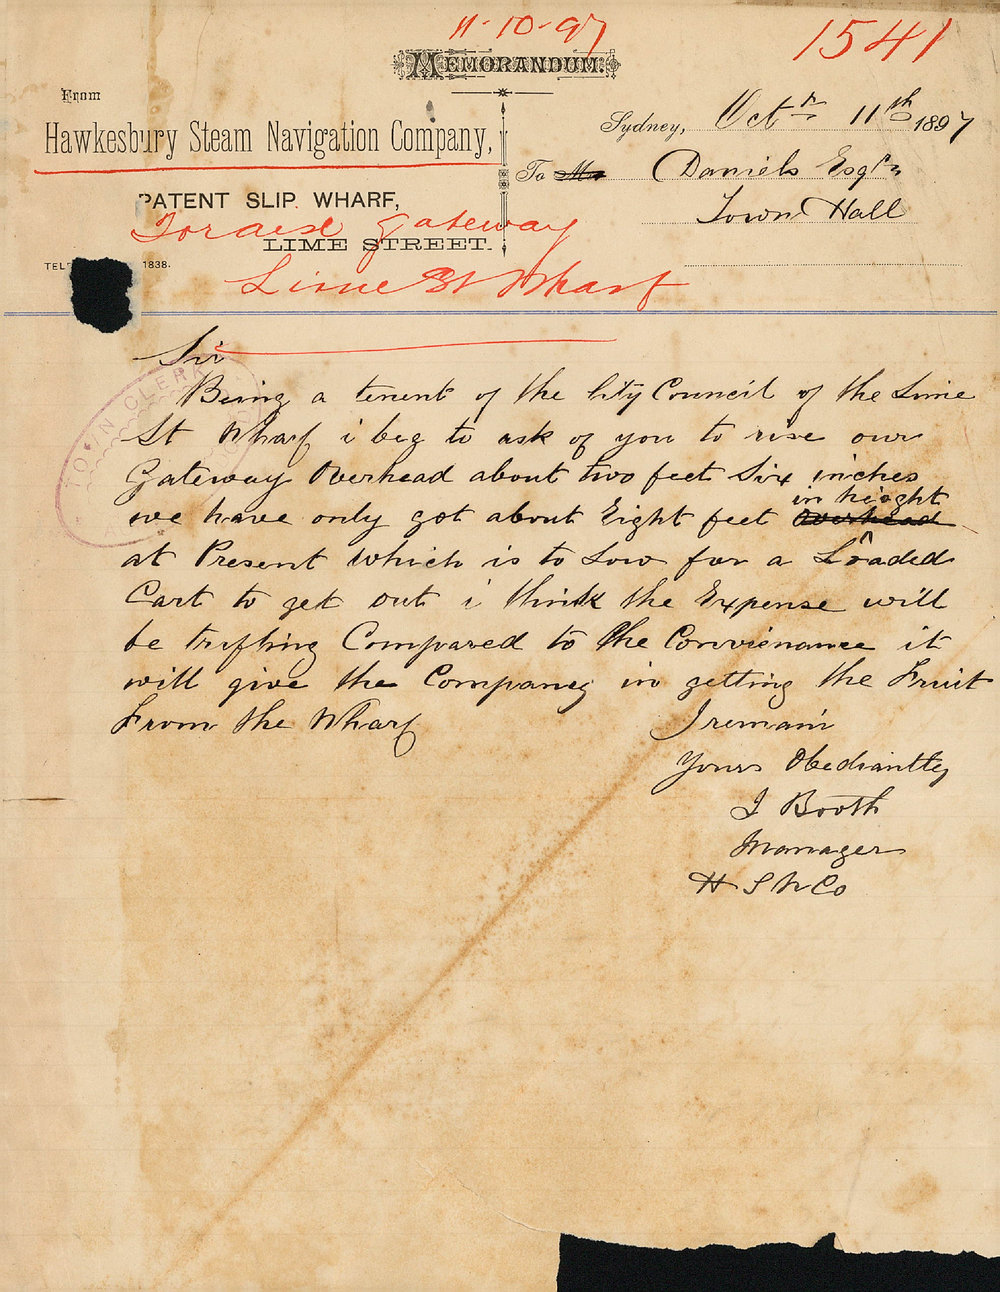 11-10-97
1541
MEMORANDUM.
From
Hawkesbury Steam Navigation Company,
PATENT SLIP WHARF,
LIME STREET.
1838.
Sydney, Octr 11th 1897
To Mr Daniels Esqr
Town Hall
To raise Gateway
Lime St Wharf
TOWN CLERK
Sir
Being a tenent of the City Council of the Lime
St Wharf i beg to ask of you to rise our
Gateway Overhead about two feet Six inches
we have only got about Eight feet overhead in hieght
at Present which is to Low for a Loaded
Cart to get out i think the Expense will
be trifling Compared to the Convienance it
will give the Company in getting the Fruit
From the Wharf
I remain
Yours Obediantley
J Booth
Manager
H S N Co